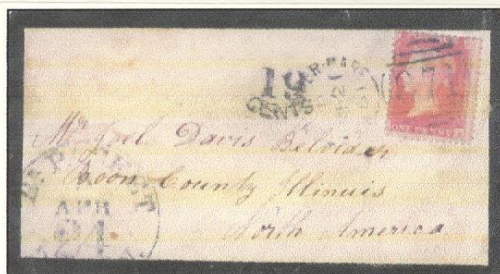 19
CENTS
ONE PENNY
Mr Joel Davis Belvider
Boon County Illinuis
North America
APR
21